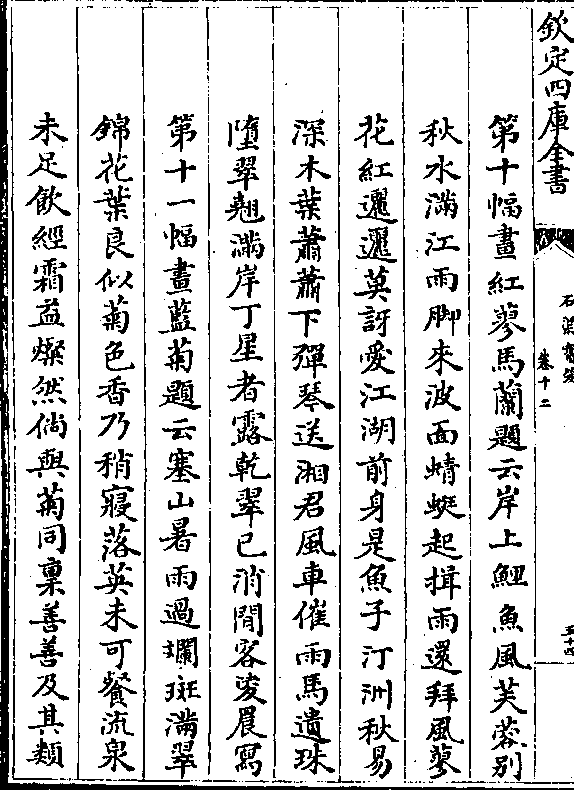 欽定四庫全書
卷十二
五十四
第十幅畫紅蓼馬蘭題云岸上鯉魚風芙蓉别
秋水滿江雨脚來波面蜻蜓起揖雨還拜風蓼
花紅邐邐莫訝愛江湖前身是魚子汀洲秋易
深木葉蕭蕭下彈琴送湘君風車催雨馬遺珠
墮翠翹滿岸丁星者露乾翠已消閒客凌晨寫
第十一幅畫藍菊題云塞山暑雨過斕斑滿翠
錦花葉良似菊色香乃稍寢落英未可餐流泉
未足飲經霜益燦然倘與菊同稟善善及其類